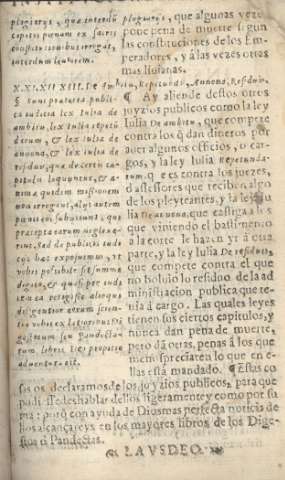 plagiarijs, quæ interdũ
capitis pœnam ex sacris
constitutionibus irrogat,
interdum leuiorem.
XI.XII.XIII. De Ambitu, Repetundis, Annona, Residuis.
§ Sunt præterea publi-
ca iudicia lex Iulia de
ambitu, lex Iulia repetũ
darum, & lex Iulia de
annona, & lex Iulia de
residuis, quæ de certis ca-
pitulis loquuntur, & a-
nimæ quidem amissionem
non irrogant, alijs autem
pœnis eos subijciunt, qui
præcepta earum neglexe-
rint. Sed de publicis iudi
cijs hæc exposuimus, vt
vobis possibile sit summo
digito, & quasi per indi
cem ea tetigisse. alioqui
diligentior eorum scien-
tia vobis ex latioribus di
gestorum seu Pandecta-
rum libris Deo propitio
aduentura est.
plagiarijs, que algunas vezes
pone pena de muerte segun
las constituciones de los Em-
peradores, y à las vezes otras
mas liuianas.
¶ Ay allende destos otros
juyzios publicos como la ley
Iulia De ambitu, que compete
contra los q̃ dan dineros por
auer algunos officios, o car-
gos, y la ley Iulia Repetunda-
rum. q̃ es contra los juezes,
o assessores que reciben algo
de los pleyteantes, y la ley Iu
lia De annona, que castiga a los
que viniendo el bastimento
a la corte le hazen yr à otra
parte, y la ley Iulia De residuis,
que compete contra el que
no boluio lo residuo de la ad
ministracion publica que te-
nia à cargo. Las quales leyes
tienen sus ciertos capitulos, y
nunca dan pena de muerte,
pero dã otras penas à los que
menospreciaren lo que en e-
llas està mandado. ¶ Estas co
sas os declaramos de los juyzios publicos, para que
podays deshablar dellos ligeramente y como por su
ma: porq̃ con ayuda de Dios mas perfecta noticia de
llos alcançareys en los mayores libros de los Dige-
stos ò Pandectas.
LAVS DEO.